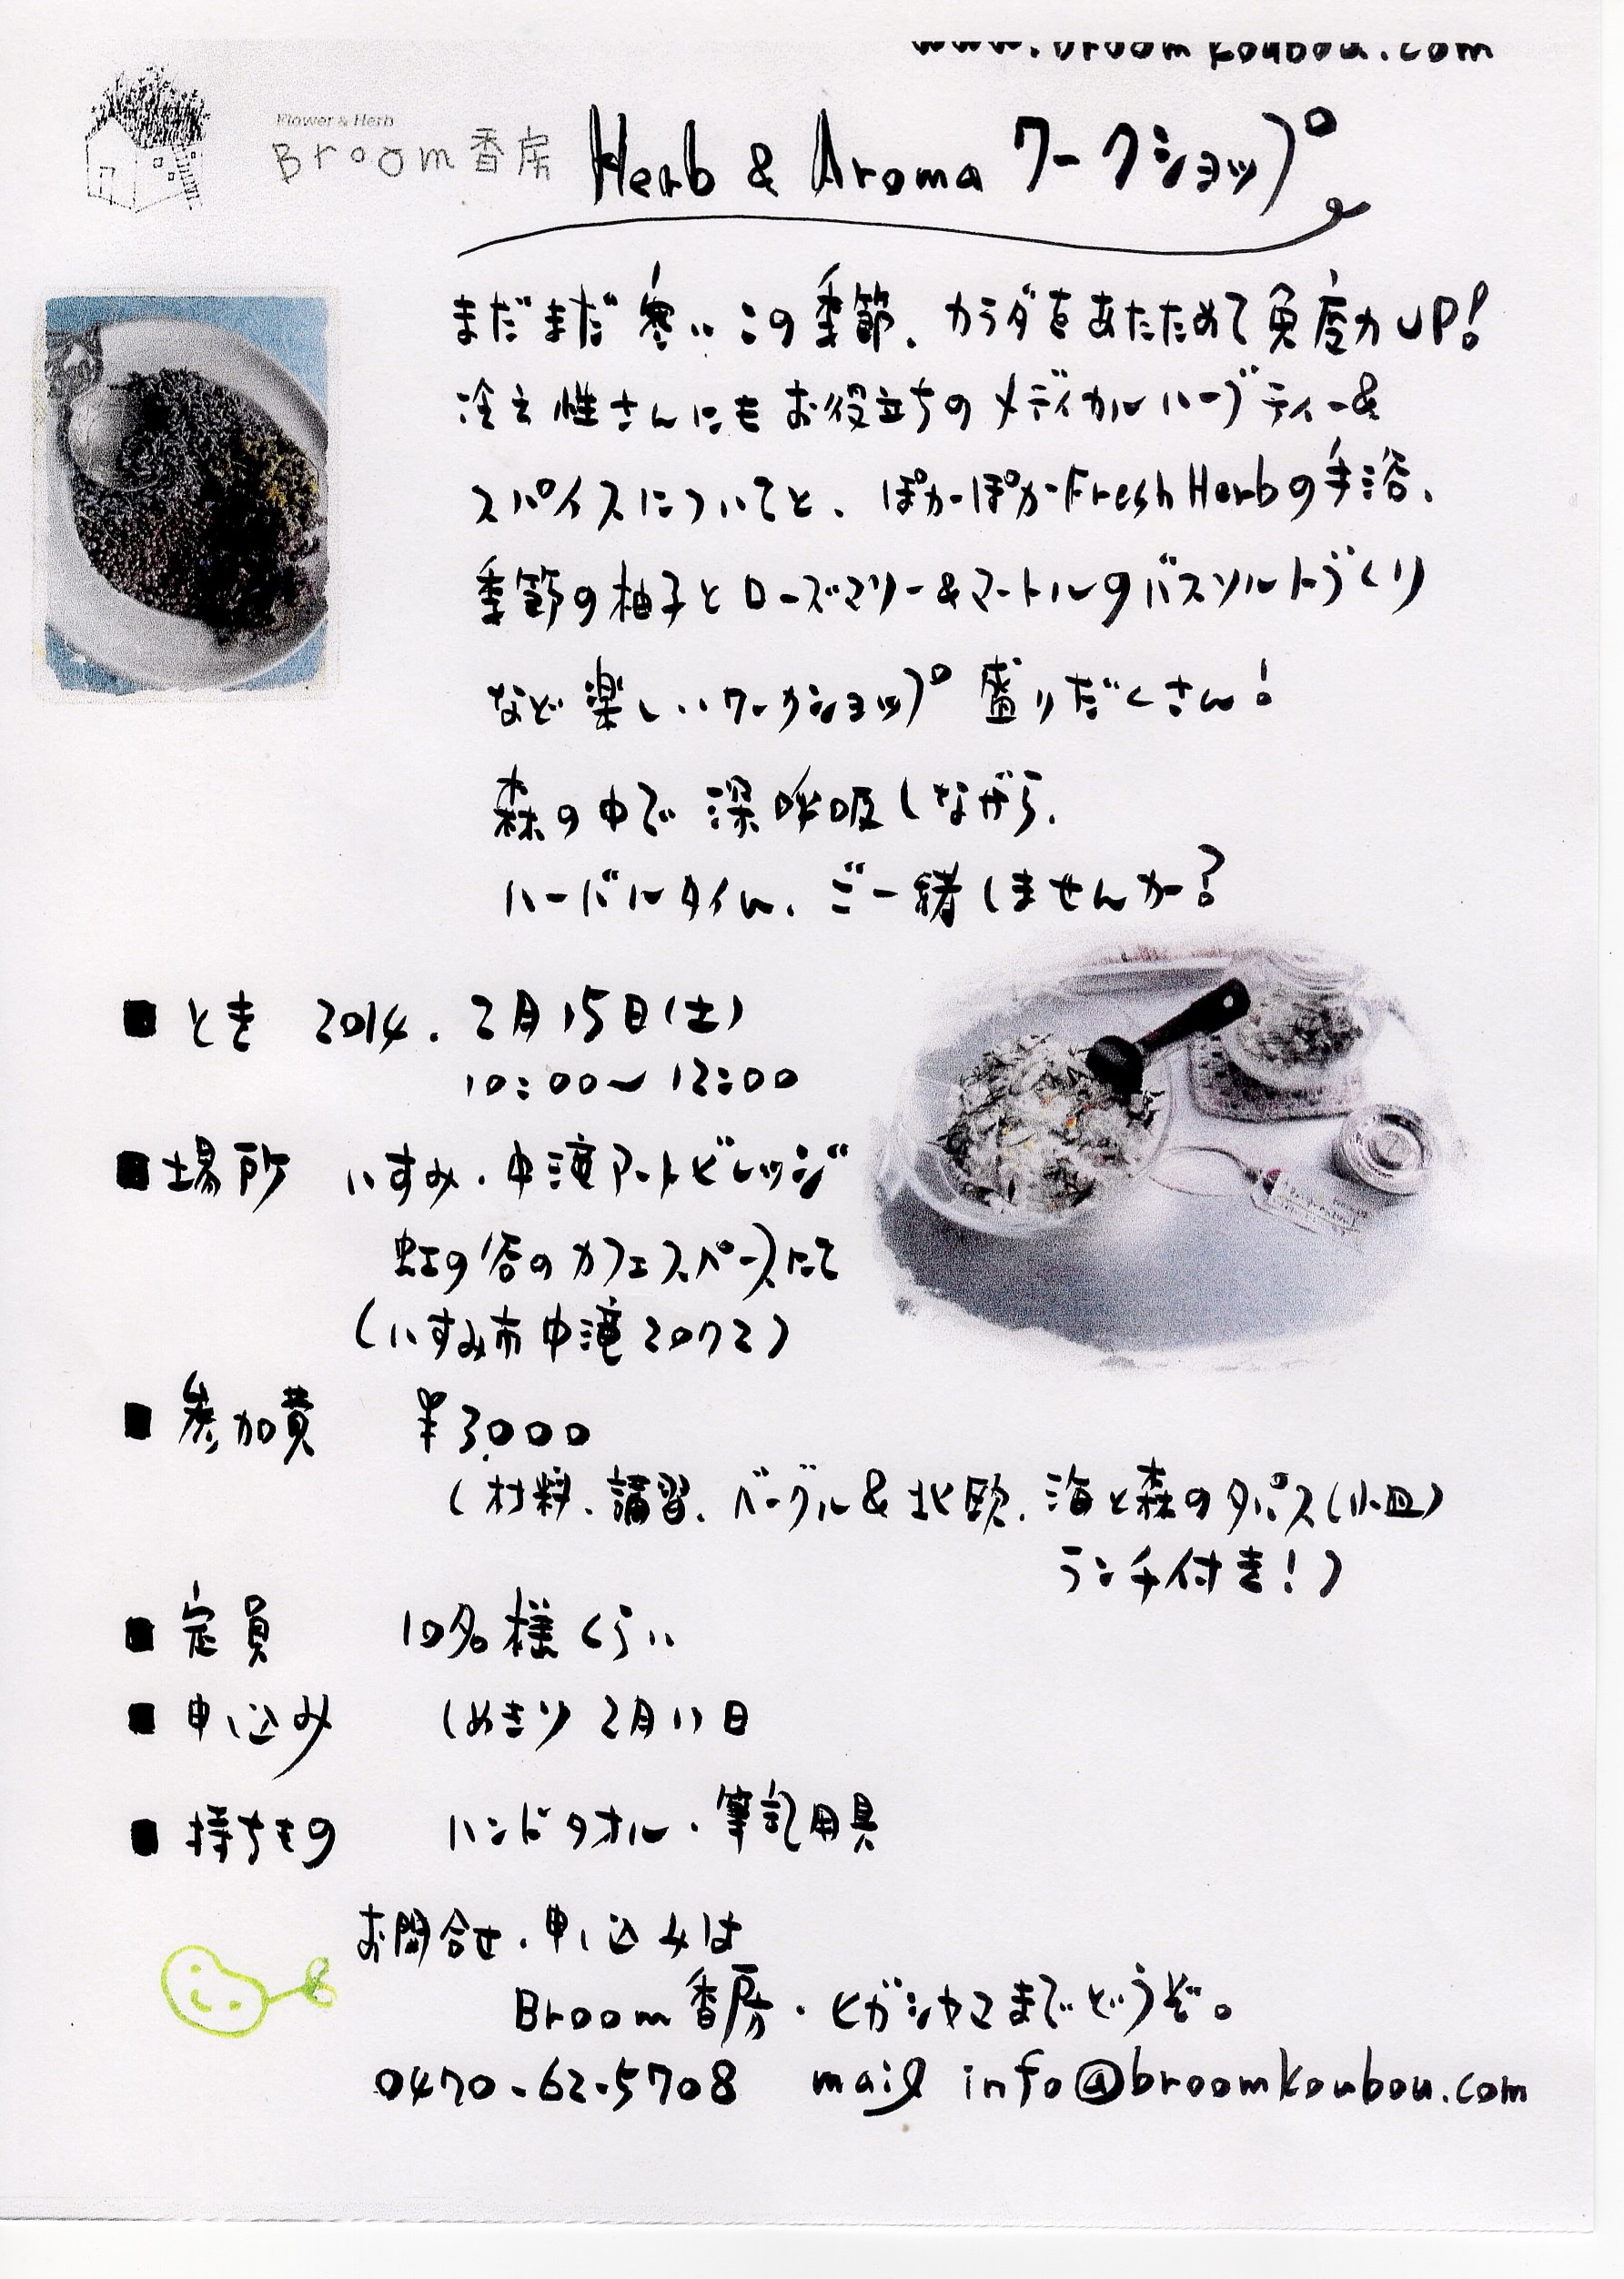 www.broomkoubou.com
Flower & Herb
Broom香房 Herb & Aroma ワークショップ
まだまだ寒いこの季節、カラダをあたためて免疫力UP!
冷え性さんにもお役立ちのメディカルハーブティー&
スパイスについてと、ぽかぽかFresh Herbの手浴、
季節の柚子とローズマリー&マートルのバスソルトづくり
など楽しいワークショップ盛りだくさん!
森の中で深呼吸しながら、
ハーバルタイム、ご一緒しませんか?
■とき 2014. 2月15日(土)
10:00〜12:00
■場所 いすみ・中滝アートビレッジ
虹の谷のカフェスペースにて
(いすみ市中滝2072)
■参加費 ¥3,000
(材料、講習、ベーグル&北欧、海と森のタパス(小皿)
ランチ付き!)
■定員 10名様くらい
■申し込み しめきり 2月11日
■持ちもの ハンドタオル・筆記用具
お問合せ・申し込みは
Broom香房・ヒガシヤマまでどうぞ。
0470-62-5708 mail info@broomkoubou.com